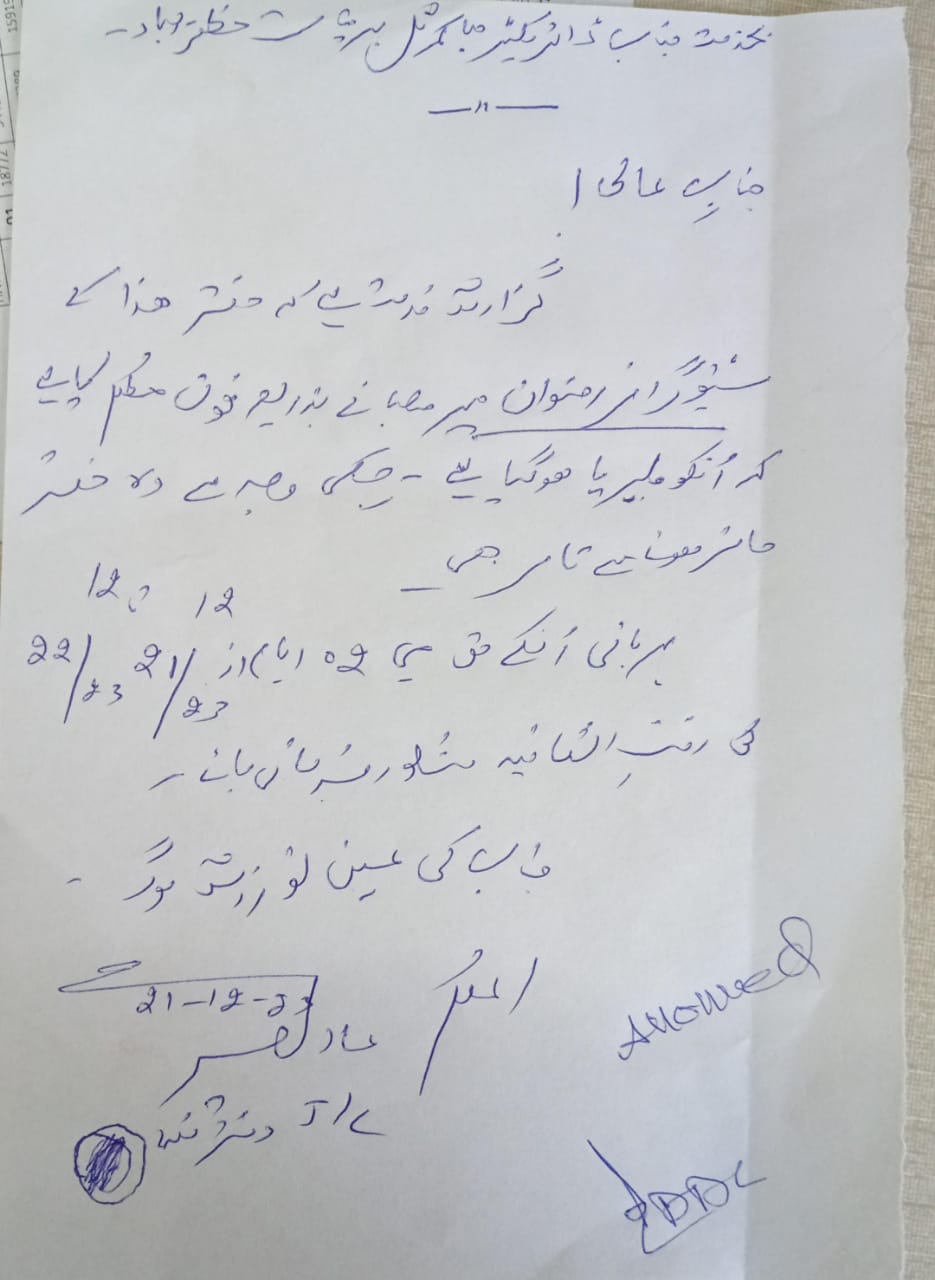 بخدمت جناب ڈائریکٹر صاحب کمرشل ہیڈ پوسٹ مظفرآباد۔
جنابِ عالی!
گزارش خدمت ہے کہ دفتر ھذا کے
سٹینوگرافر رضوان میر صاحب نے بذریعہ فون مطلع کیا ہے
کہ اُنکو ملیریا ھو گیا ہے ۔ جسکی وجہ سے وہ دفتر
حاضر ھونے سے قاصر ھیں۔
مہربانی اُنکے حق میں 02 ایام از 21/12/23 تا 22/12/23
کی رخصتِ اتفاقیہ منظور فرمائی جائے۔
جناب کی عین نوازش ہوگی۔
21-12-23
Allowed